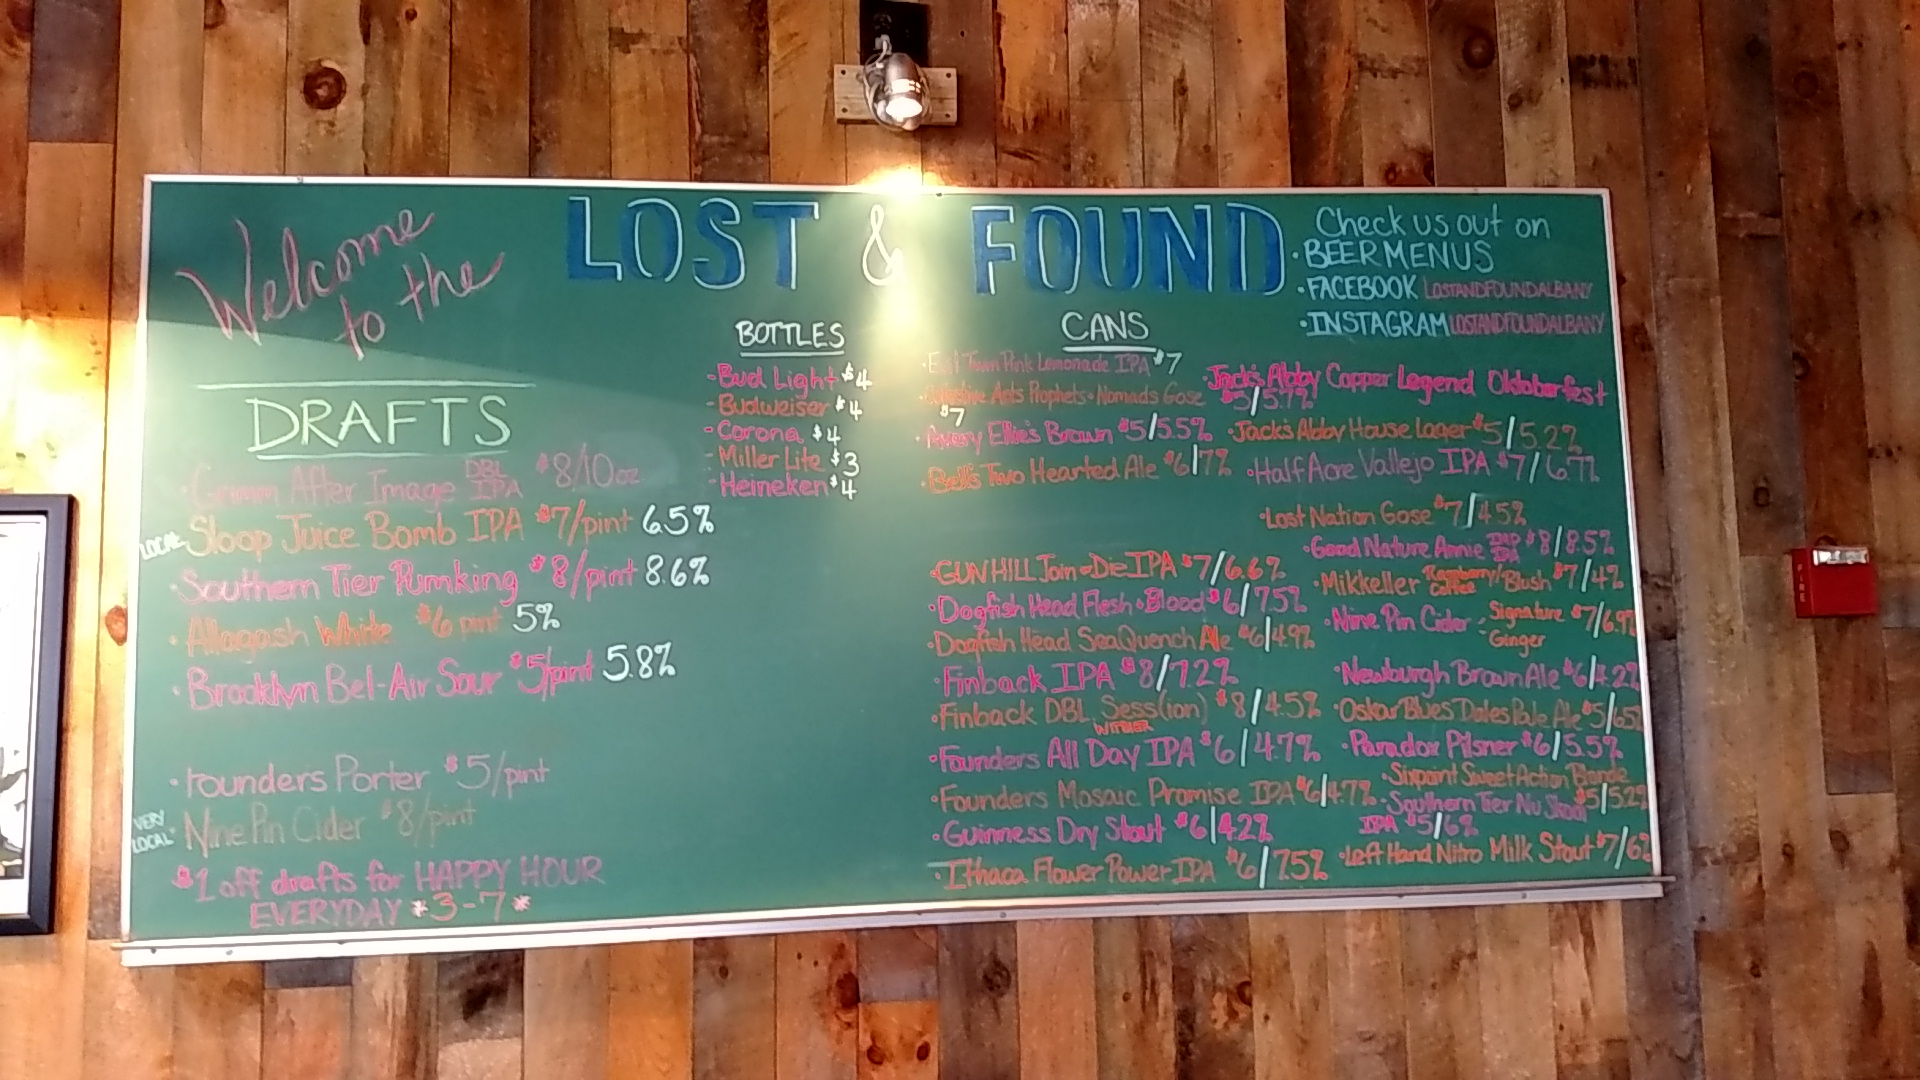 Welcome
to the
LOST & FOUND
Check us out on
• BEERMENUS
• FACEBOOK LOSTANDFOUNDALBANY
• INSTAGRAM LOSTANDFOUNDALBANY
DRAFTS
• Grimm After Image DBL IPA $8/10oz
LOCAL Sloop Juice Bomb IPA $7/pint 6.5%
• Southern Tier Pumking $8/pint 8.6%
• Allagash White $6 pint 5%
• Brooklyn Bel-Air Sour $5/pint 5.8%
• Founders Porter $5/pint
VERY LOCAL • Nine Pin Cider $8/pint
$1 off drafts for HAPPY HOUR
EVERYDAY *3-7*
BOTTLES
- Bud Light $4
- Budweiser $4
- Corona $4
- Miller Lite $3
- Heineken $4
CANS
Town Pink Lemonade IPA $7
Arts Prophets + Nomads Gose
$7
• Avery Ellie's Brown $5/5.5%
• Bell's Two Hearted Ale $6/7%
• GUN HILL Join or Die IPA $7/6.6%
• Dogfish Head Flesh & Blood $6/7.5%
• Dogfish Head SeaQuench Ale $6/4.9%
• Finback IPA $8/7.2%
• Finback DBL Sess(ion) $8/4.5%
WITBIER
• Founders All Day IPA $6/4.7%
• Founders Mosaic Promise IPA $6/4.7%
• Guinness Dry Stout $6/4.2%
• Ithaca Flower Power IPA $6/7.5%
• Jack's Abby Copper Legend Oktoberfest
$5/5.7%
• Jack's Abby House Lager $5/5.2%
• Half Acre Vallejo IPA $7/6.7%
• Lost Nation Gose $7/4.5%
• Good Nature Annie IPA $8/8.5%
• Mikkeller Raspberry/Coffee Blush $7/4%
• Nine Pin Cider - Signature $7/6.9%
- Ginger
• Newburgh Brown Ale $6/4.2%
• Oskar Blues Dales Pale Ale $5/6.5%
• Paradox Pilsner $6/5.5%
• Sixpoint Sweet Action Blonde
$5/5.2%
• Southern Tier Nu Skool
IPA $5/6%
• Left Hand Nitro Milk Stout $7/6%
FIRE